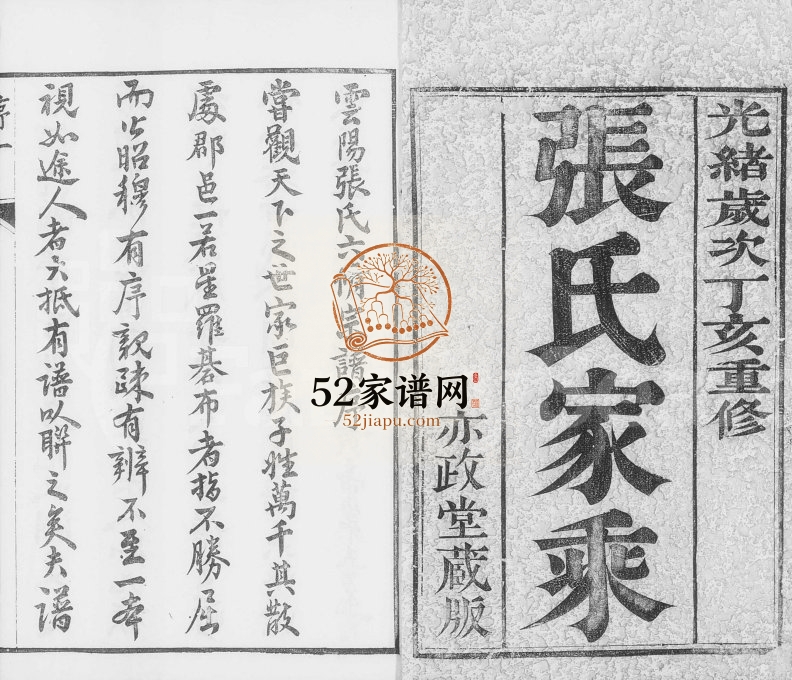 光緒歲次丁亥重修
張氏家乘
亦政堂藏版
雲陽張氏六修宗譜序
嘗觀天下之世家巨族子姓萬千其散
處郡邑一若星羅碁布者指不勝屈
而以昭穆有序親疎有辨不至一本
視如途人者大抵有譜以聯之矣夫譜
序一
52家谱网
52jiapu.com